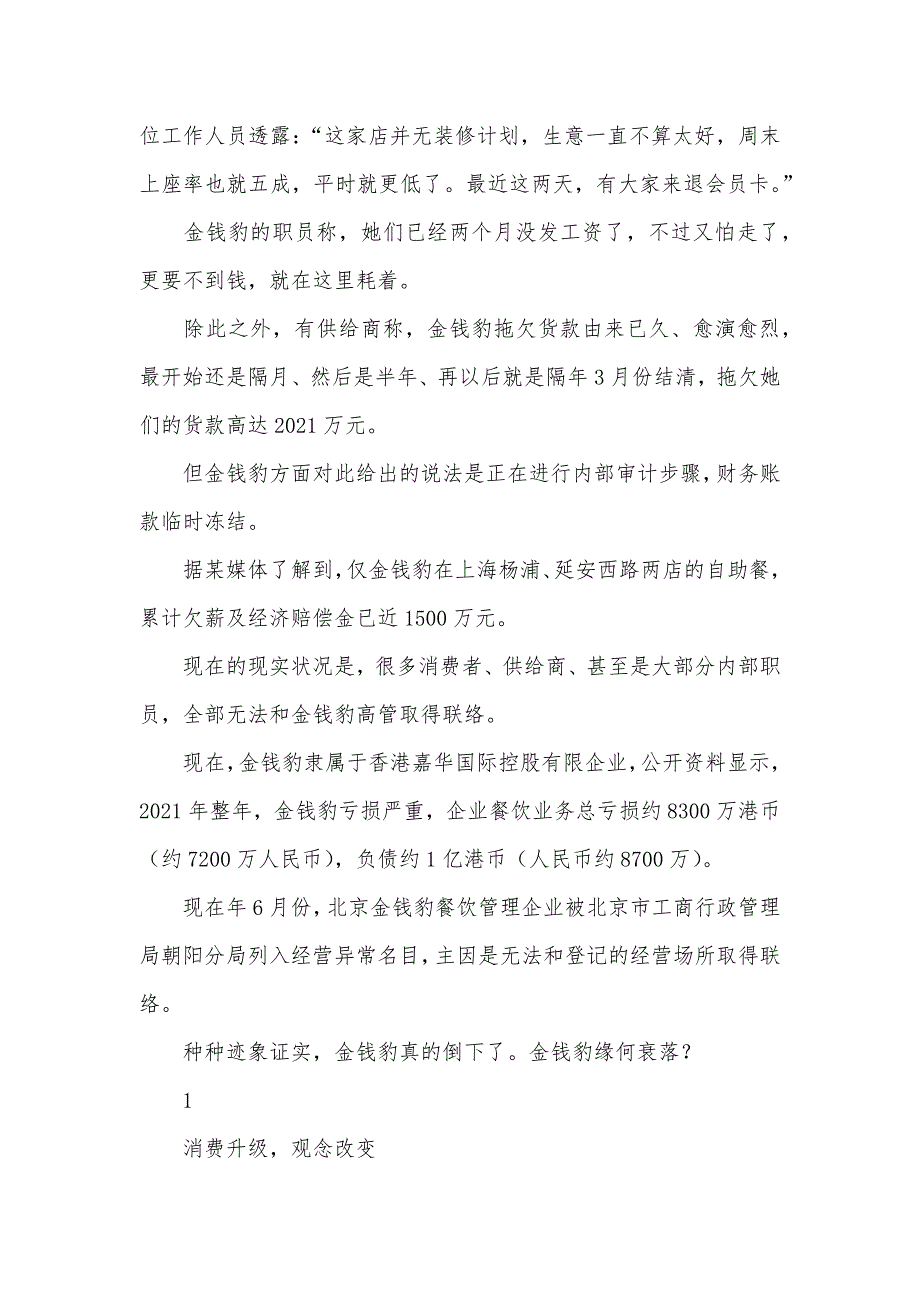 位工作人员透露：“这家店并无装修计划，生意一直不算太好，周末
上座率也就五成，平时就更低了。最近这两天，有大家来退会员卡。”
金钱豹的职员称，她们已经两个月没发工资了，不过又怕走了，
更要不到钱，就在这里耗着。
除此之外，有供给商称，金钱豹拖欠货款由来已久、愈演愈烈，
最开始还是隔月、然后是半年、再以后就是隔年 3 月份结清，拖欠她
们的货款高达 2021 万元。
但金钱豹方面对此给出的说法是正在进行内部审计步骤，财务账
款临时冻结。
据某媒体了解到，仅金钱豹在上海杨浦、延安西路两店的自助餐，
累计欠薪及经济赔偿金已近 1500 万元。
现在的现实状况是，很多消费者、供给商、甚至是大部分内部职
员，全部无法和金钱豹高管取得联络。
现在，金钱豹隶属于香港嘉华国际控股有限企业，公开资料显示，
2021 年整年，金钱豹亏损严重，企业餐饮业务总亏损约 8300 万港币
（约 7200 万人民币），负债约 1 亿港币（人民币约 8700 万）。
现在年 6 月份，北京金钱豹餐饮管理企业被北京市工商行政管理
局朝阳分局列入经营异常名目，主因是无法和登记的经营场所取得联
络。
种种迹象证实，金钱豹真的倒下了。金钱豹缘何衰落？
1
消费升级，观念改变